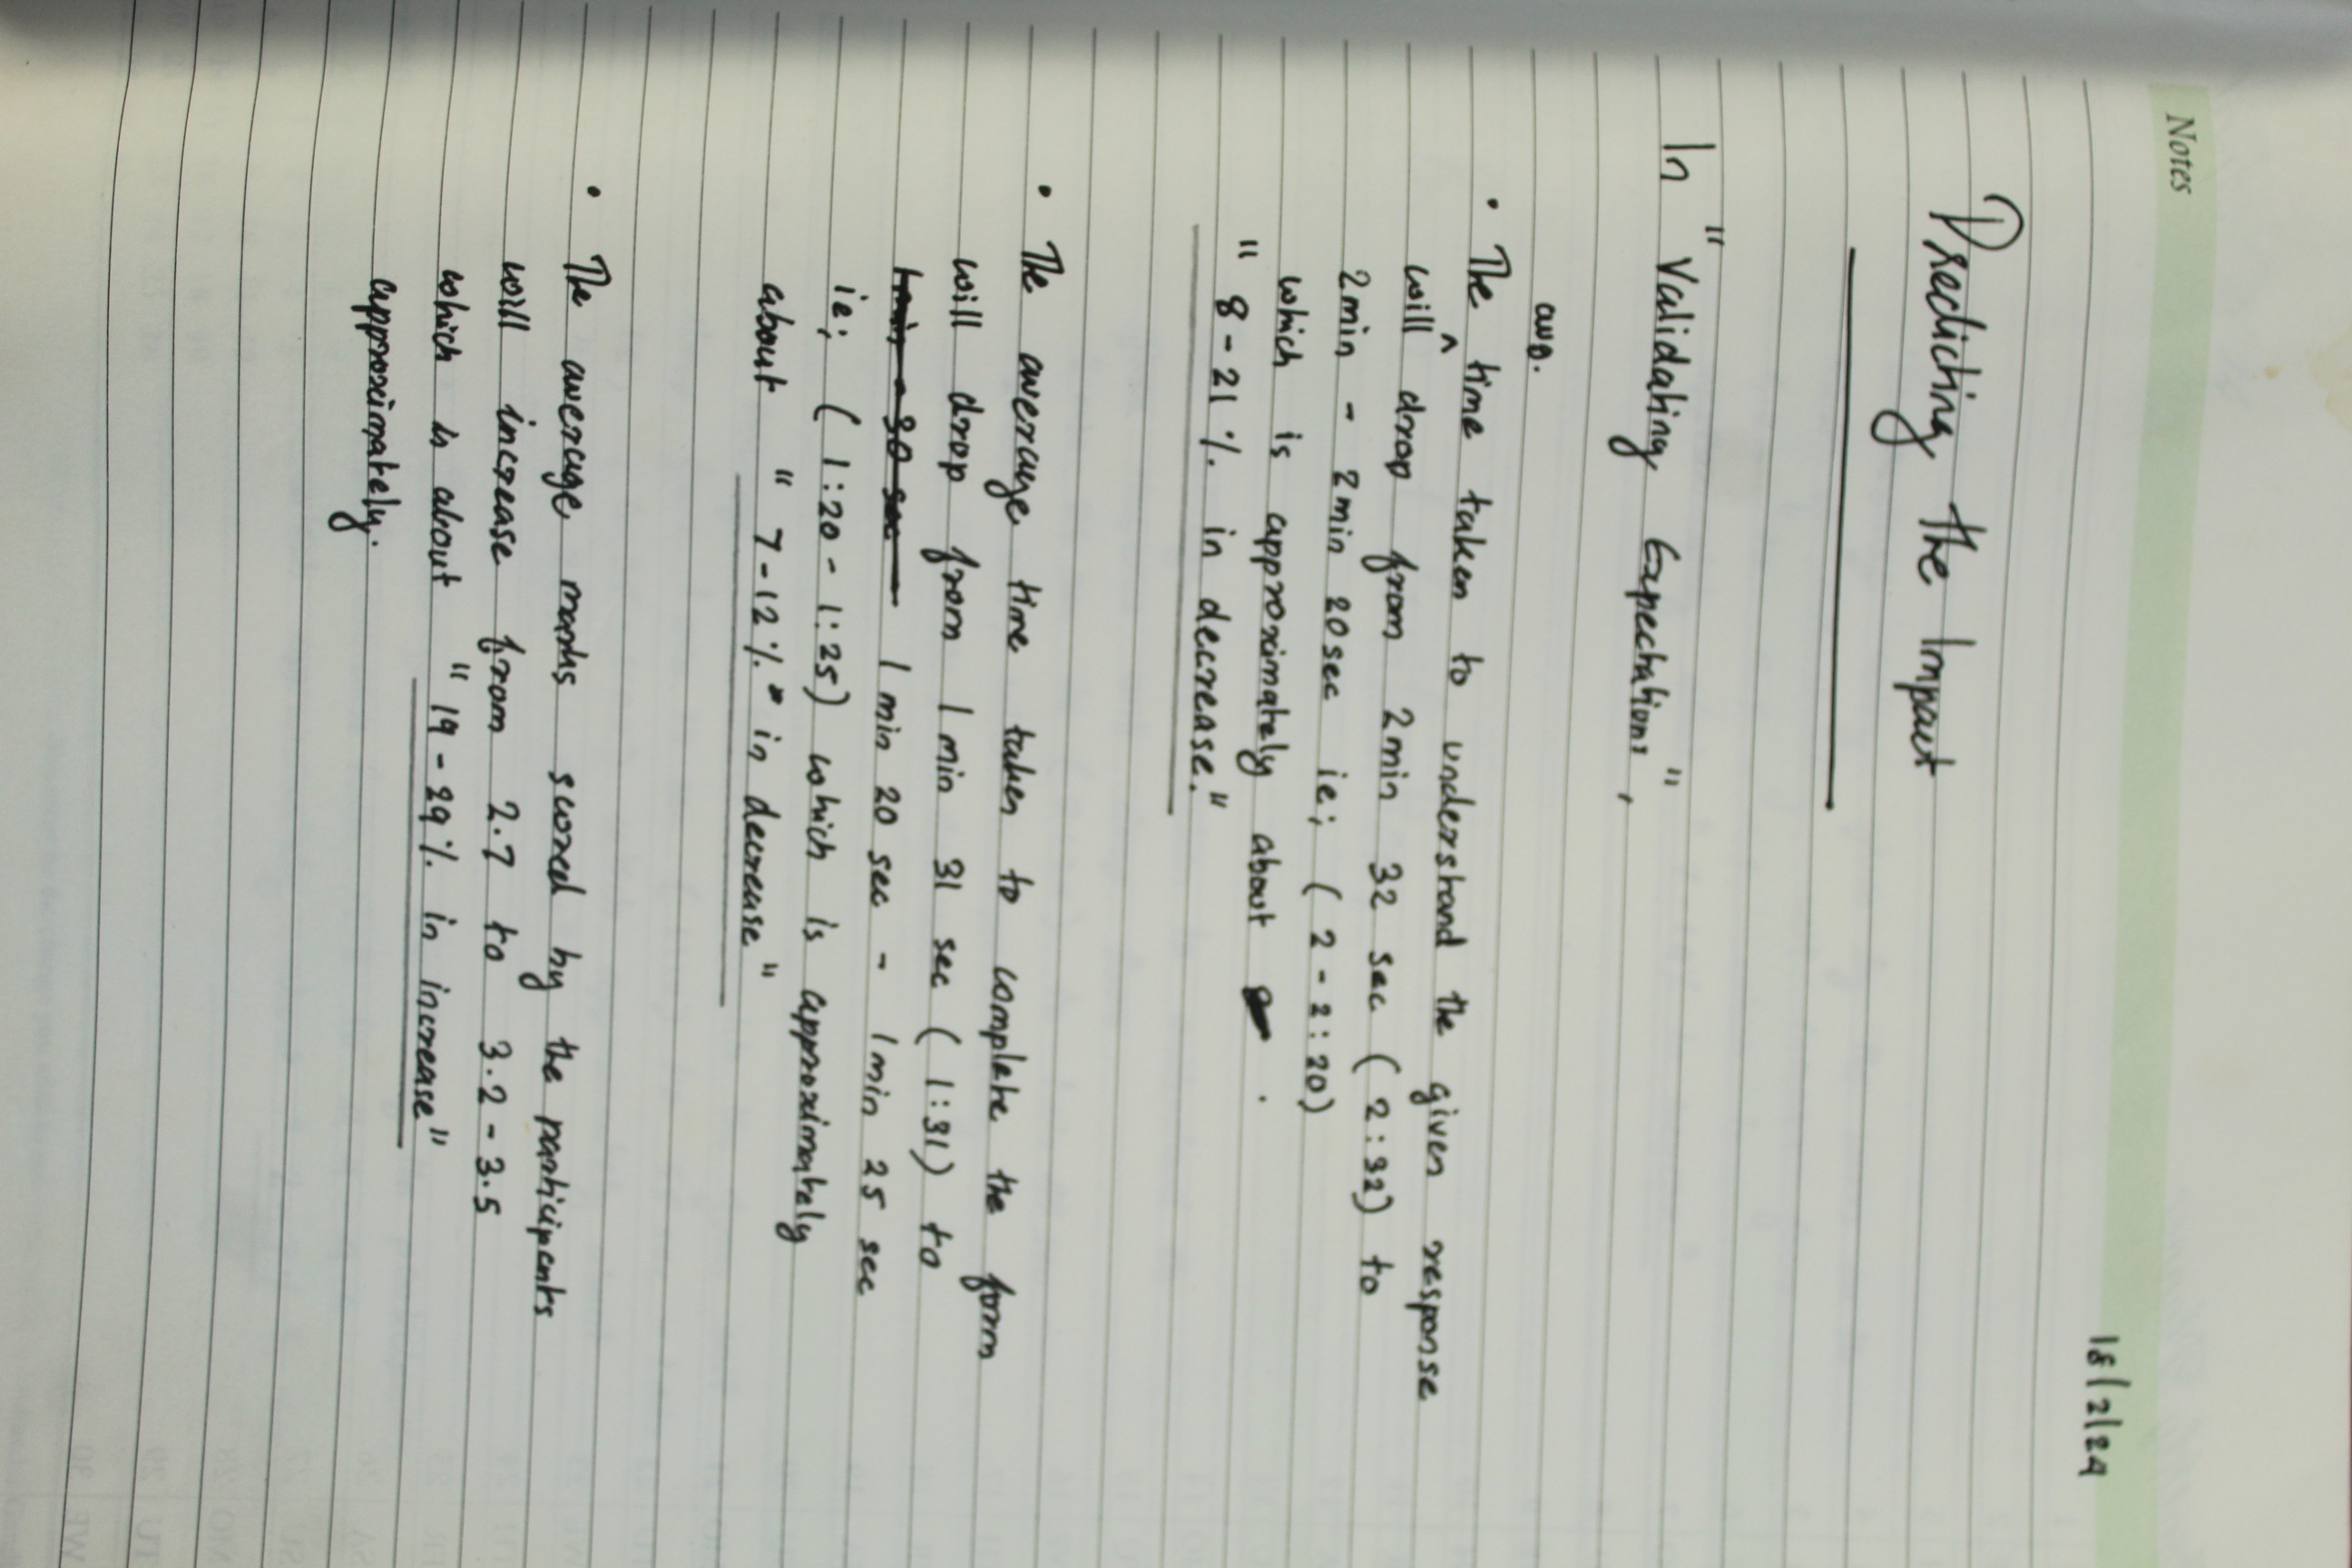 Notes
18/2/24
Predicting the Impact
In "Validating Expectations",
avg.
• The ^ time taken to understand the given response
will drop from 2min 32 sec (2:32) to
2min - 2min 20sec ie; (2 - 2:20)
which is approximately about
" 8-21 % in decrease."
• The average time taken to complete the form
will drop from 1 min 31 sec (1:31) to
1min - 30 sec 1 min 20 sec - 1min 25 sec
ie; (1:20 - 1:25) which is approximately
about " 7-12 % in decrease"
• The average marks scored by the participants
will increase from 2.7 to 3.2 - 3.5
which is about " 19 - 29 % in increase"
approximately.